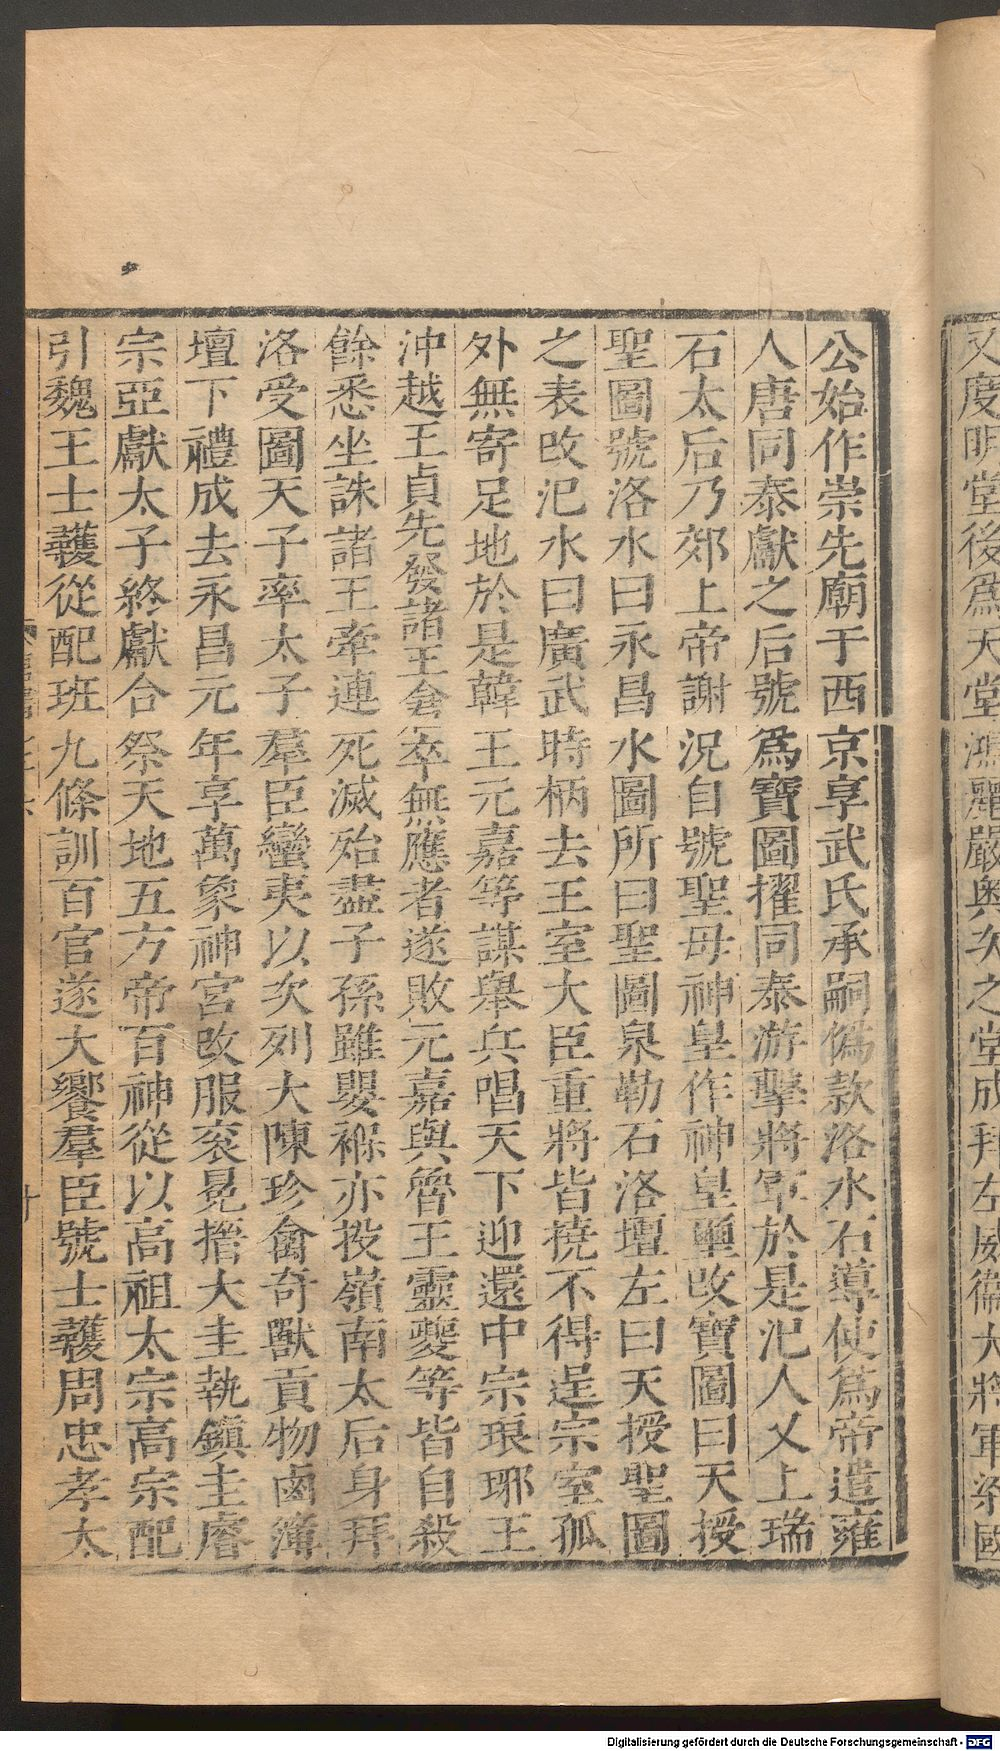 又度明堂後為天堂鴻麗嚴奧次之堂成拜左威衛大將軍梁國
公始作崇先廟于西京享武氏承嗣偽款洛水石導使爲帝遣雍
人唐同泰獻之后號爲寶圖擢同泰游擊將軍於是汜人又上瑞
石太后乃郊上帝謝況自號聖母神皇作神皇璽改寶圖曰天授
聖圖號洛水曰永昌水圖所曰聖圖泉勒石洛壇左曰天授聖圖
之表改汜水曰廣武時柄去王室大臣重將皆撓不得逞宗室孤
外無寄足地於是韓王元嘉等謀舉兵唱天下迎還中宗琅邪王
沖越王貞先發諸王倉卒無應者遂敗元嘉與魯王靈夔等皆自殺
餘悉坐誅諸王牽連死滅殆盡子孫雖嬰褓亦投嶺南太后身拜
洛受圖天子率太子羣臣蠻夷以次列大陳珍禽奇獸貢物鹵簿
壇下禮成去永昌元年享萬象神宮改服袞冕搢大圭執鎮圭睿
宗亞獻太子終獻合祭天地五方帝百神從以高祖太宗高宗配
引魏王士彠從配班九條訓百官遂大饗羣臣號士彠周忠孝太
Digitalisierung gefördert durch die Deutsche Forschungsgemeinschaft - DFG